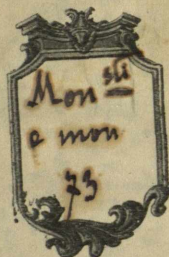 Mon sli
e mon
73